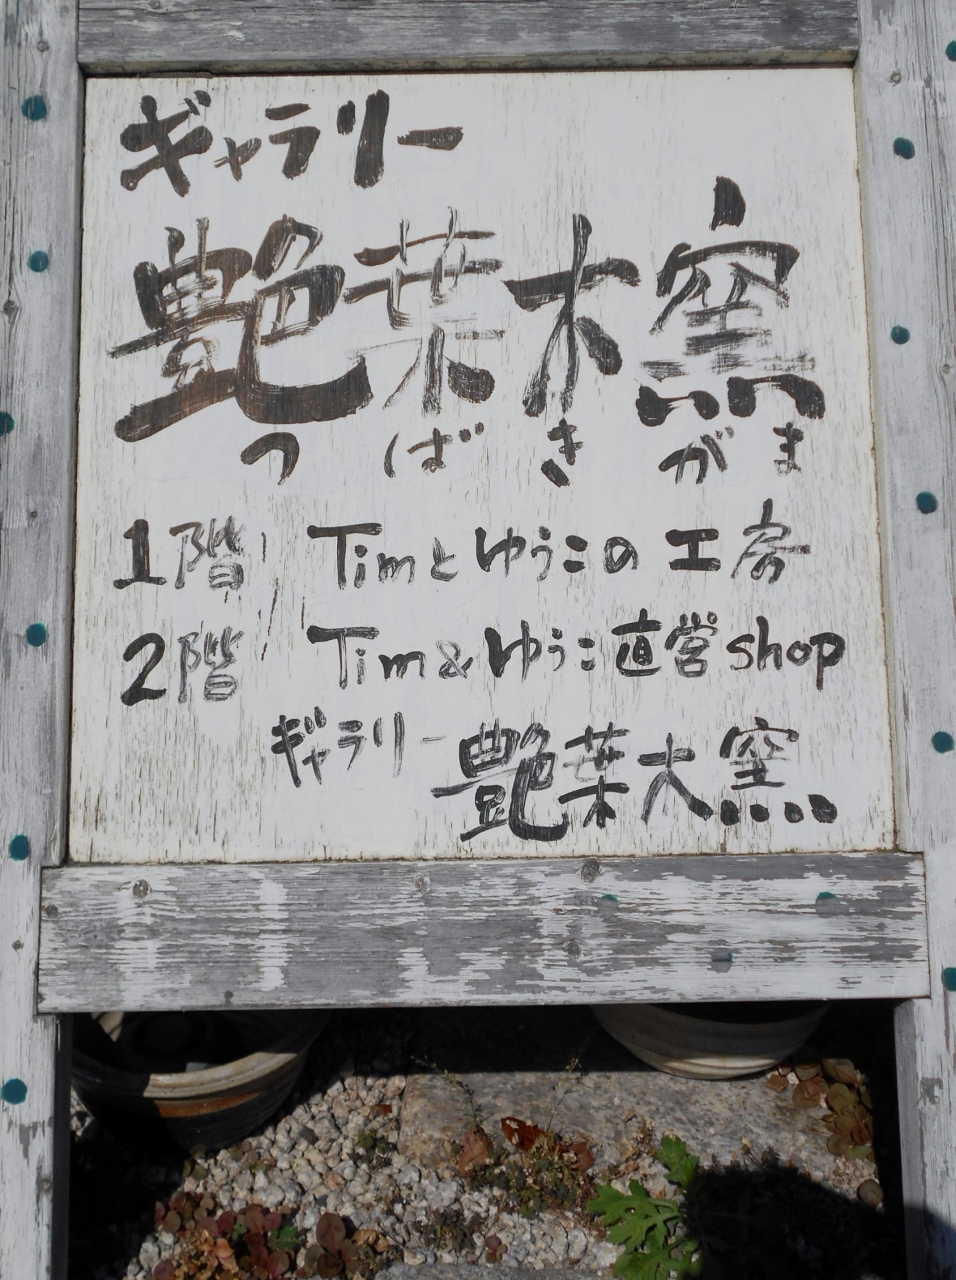 ギャラリー
艶葉木窯
つばきがま
1階 Timとゆうこの工房
2階 Tim&ゆうこ直営shop
ギャラリー 艶葉木窯